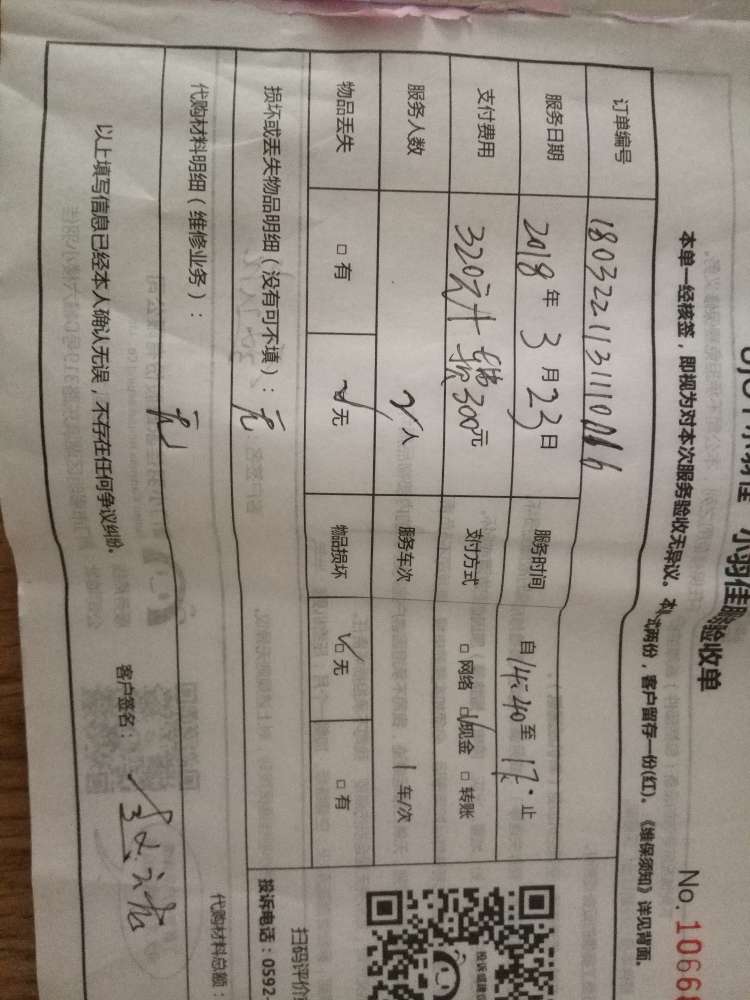 小羽佳服务验收单
No. 1066
本单一经核签，即视为对本次服务验收无异议。本单一式两份，客户留存一份(红)。《维保须知》详见背面。
订单编号 1803221131110016
服务日期 2018年3月23日 服务时间 自14:40至17:止
支付费用 320元 300元 支付方式 □网络 ☑现金 □转账
服务人数 2人 服务车次 1车/次
物品丢失 □有 ☑无 物品损坏 ☑无 □有
损坏或丢失物品明细（没有可不填）：无
代购材料明细（维修业务）：无
代购材料总额：
以上填写信息已经本人确认无误，不存在任何争议纠纷。
客户签名：
扫码评价
投诉电话：0592